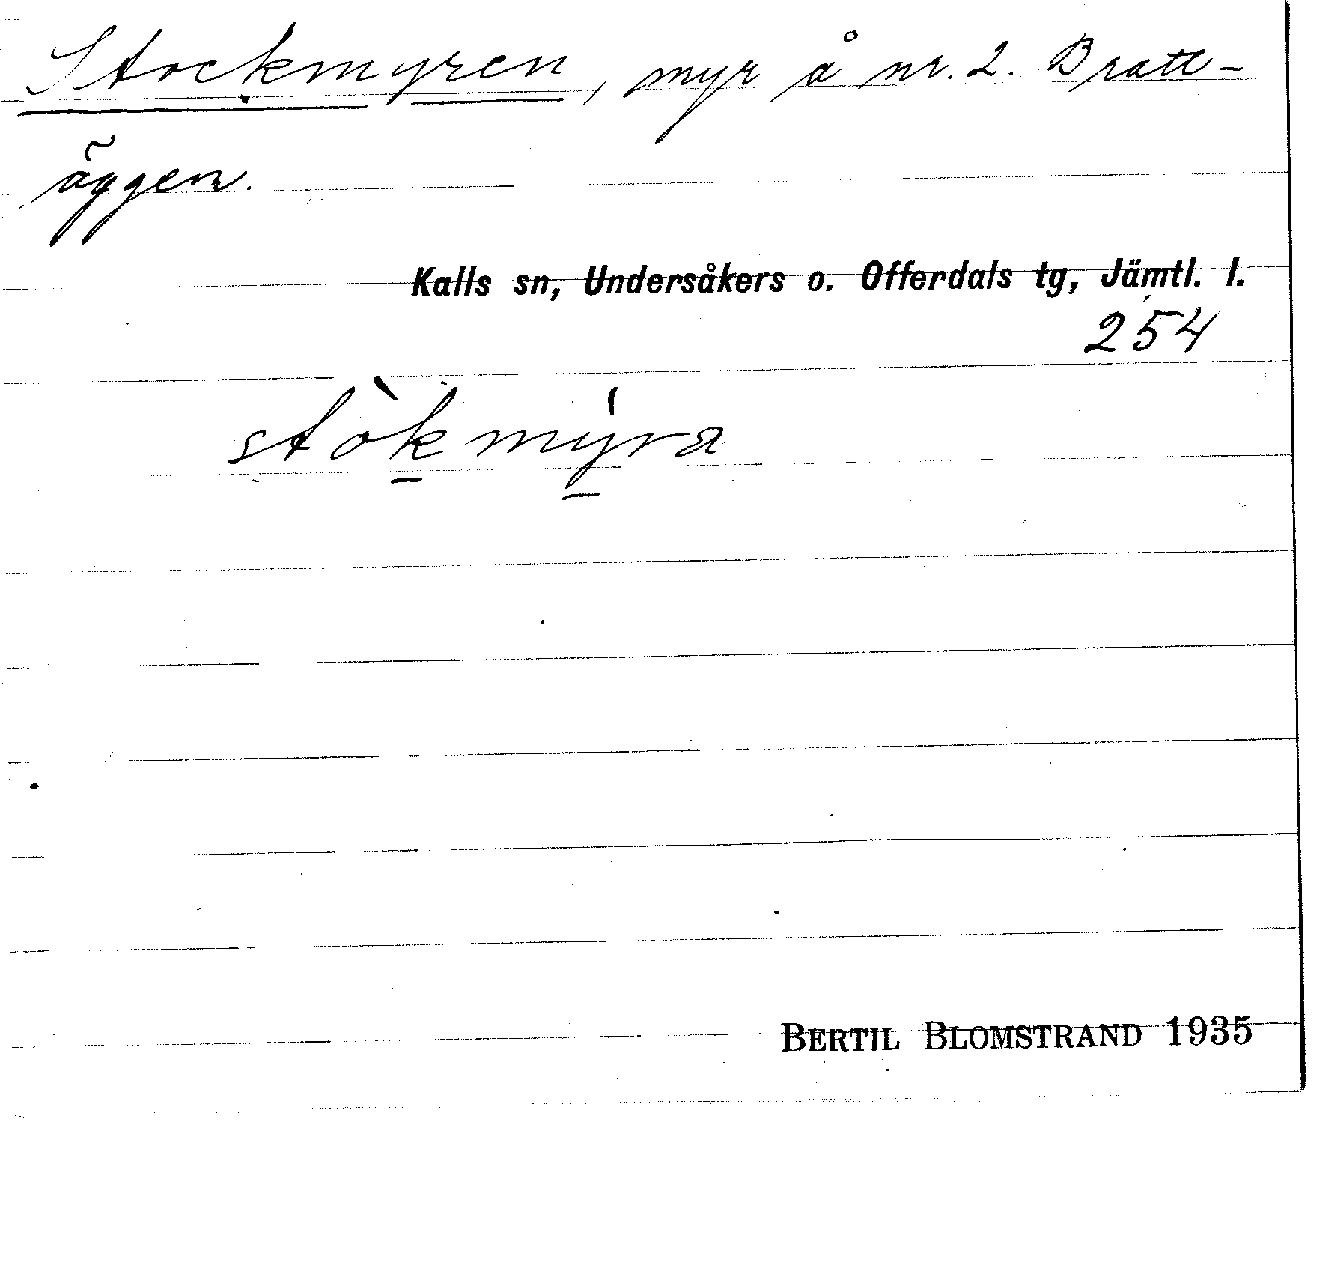 Stockmyren, myr å nr. 2. Bratt-
äggen.
Kalls sn, Undersåkers o. Offerdals tg, Jämtl. l.
254
stòkmýra
BERTIL BLOMSTRAND 1935